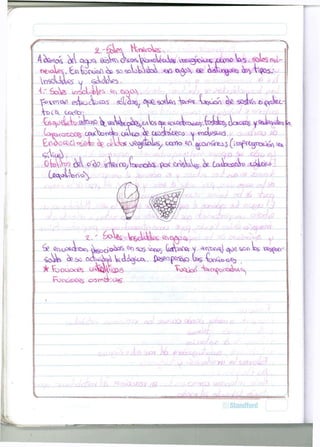 2.- Sales Minerales.
Además del agua existen otras biomoléculas inorgánicas como las sales mi-
nerales. En función de su solubilidad en agua, se distinguen dos tipos:
insolubles y solubles.
1.- Sales insolubles en agua.
Forman estructuras sólidas, que suelen tener función de sostén o protec-
tora, como:
Esqueleto interno de vertebrados, en los que encontramos: fosfatos, cloruros y
Caparazones carbonato cálcico de crustáceos y moluscos
Endurecimiento de células vegetales, como en gramíneas (impregnación con
sílice).
Otolitos del oído interno, formados por cristales de carbonato cálcico
(equilibrio).
2.- Sales Insolubles en agua
Se encuentran disociadas en sus iones (cationes y aniones) que son los respon-
sables de su actividad biológica. Desempeñan las funciones.
* Funciones catalíticas Función tamponadora
Funciones osmóticas
Standford